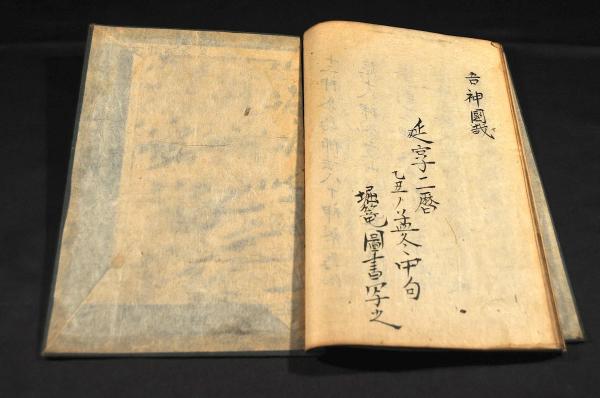 吾神國哉
延享二暦
乙丑ノ孟冬中旬
堀篭圖書写之